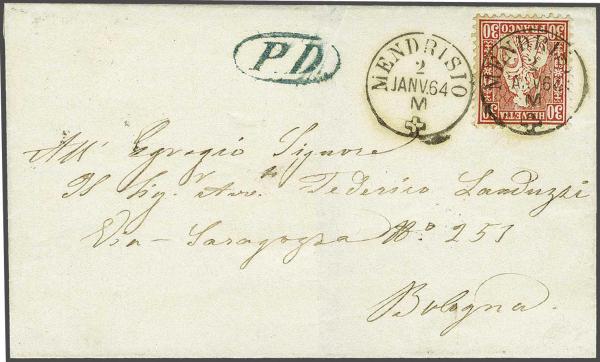 P.D.
MENDRISIO
2
JANV.64
M
30 FRANCO 30
30 HELVETIA 30
MENDRISI
M
All' Egregio Signore
Il Sig. Avv. Federico Landuzzi
Via Saragozza No. 251
Bologna.